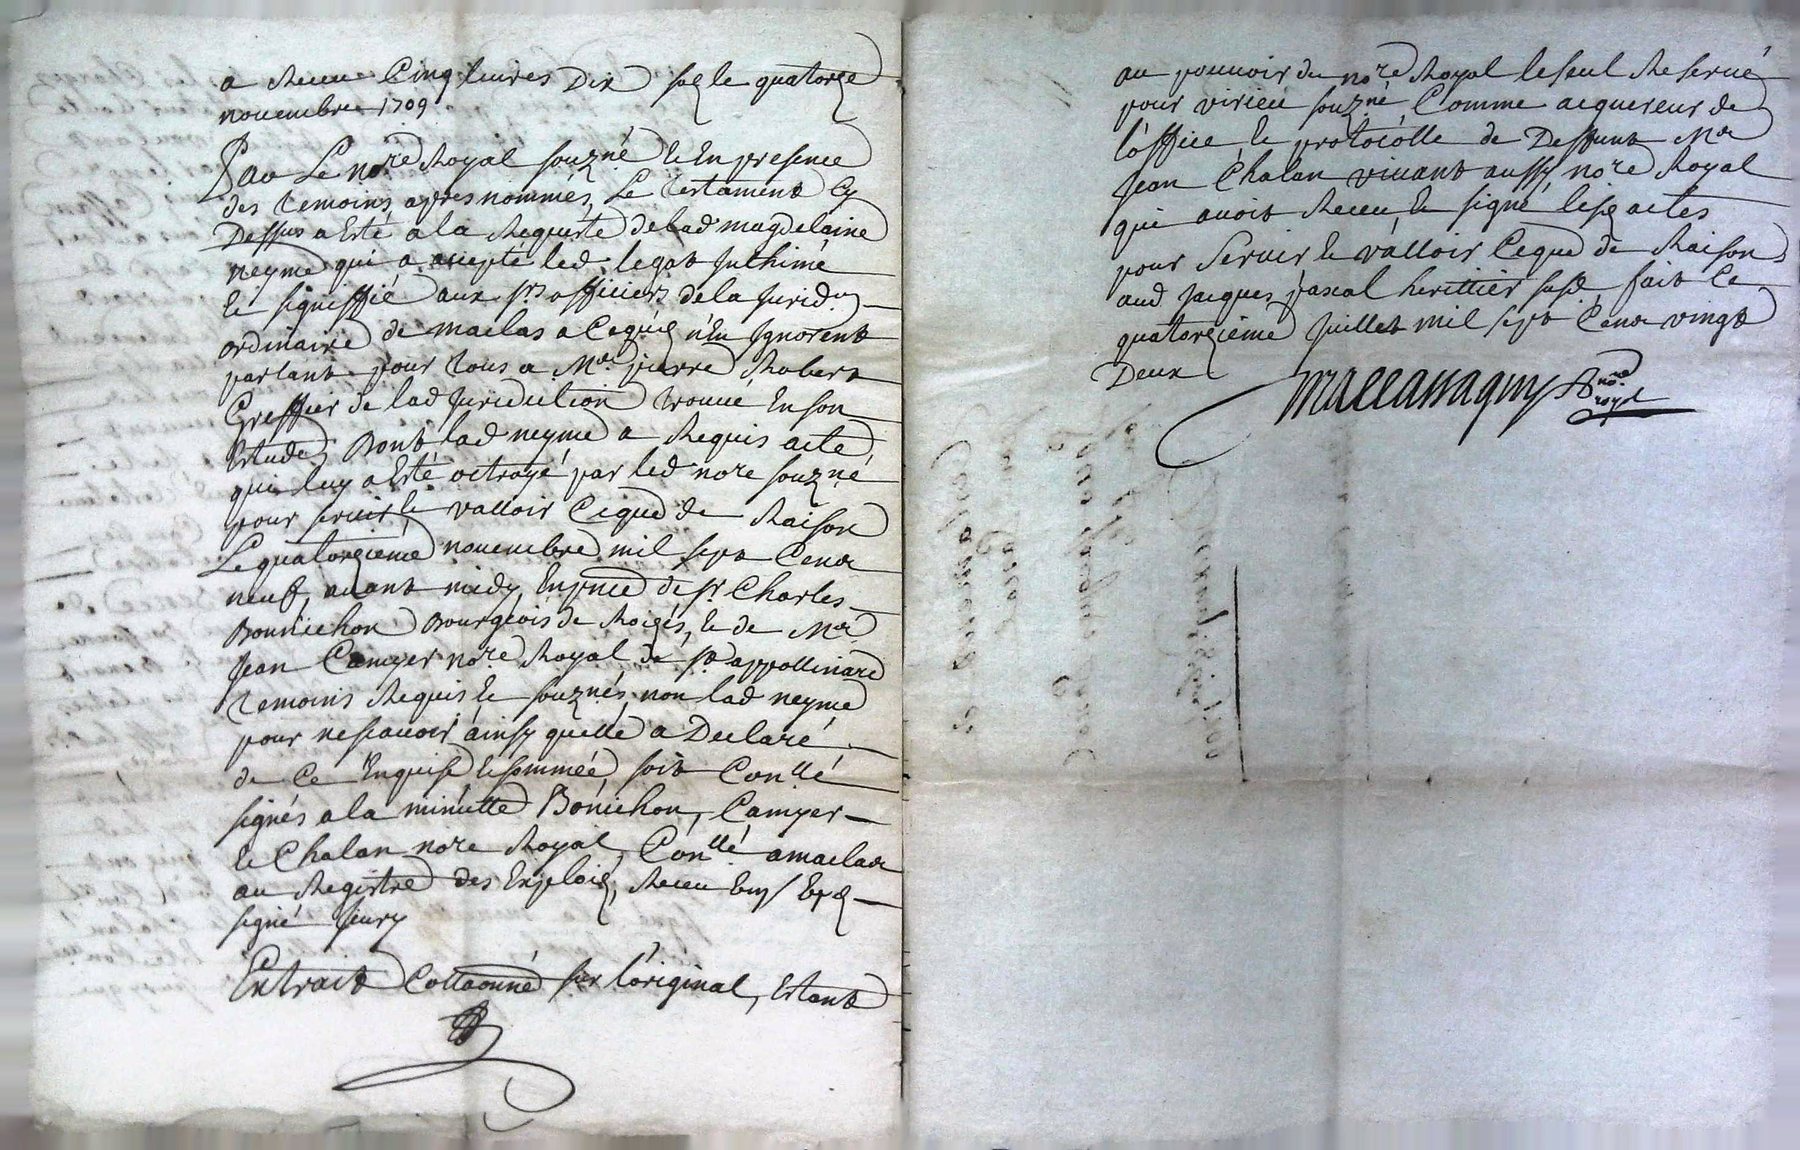 a Receu Cinq liures Dix solz le quatorze
novembre 1709
Par Le nore Royal souzné & En presence
des temoins apres nommés, Le testament Cy
Dessus a Esté a la Requeste de lad magdelaine
neyme qui a accepté led legat Inthimé
& signiffié aux srs officiers de la Juridon
ordinaire de maclas a Cequilz n'En Ignorent
parlant pour tous a Me pierre Robert
Greffier de lad Juridiction trouué En son
Estude, Dont lad neyme a Requis acte,
qui luy a Esté octroyé par led nore souzné
pour seruir & valloir Ceque de Raison
Le quatorzieme nouembre mil sept Cent
neuf, auant midy, En pnce de sr Charles
Bonnichon Bourgeois de Roizés, & de Me
Jean Camyer nore Royal de St appollinard
temoins Requis & souznés, non lad neyme
pour nescauoir ainsy quelle a Declaré
de Ce Enquise & sommée, soit Conllé
signés a la minutte Bonichon, Camyer
& Chalan nore Royal, Conllé a maclas
au Registre des Exploiz, Receu
signé fleury
Extrait Collaonné sur l'original, Estant
au pouuoir du nore Royal le seul Reserué
pour virieu souzné Comme acquereur de
l'office & protocolle de Deffunt Me
Jean Chalan viuant aussy nore Royal
qui auoit Receu & signé lesd actes
pour Seruir & valloir Ceque de Raison
aud Jacques pascal herittier susd, fait Ce
quatorzième Juillet mil sept Cent vingt
Deux
Mallassagny nore
royal